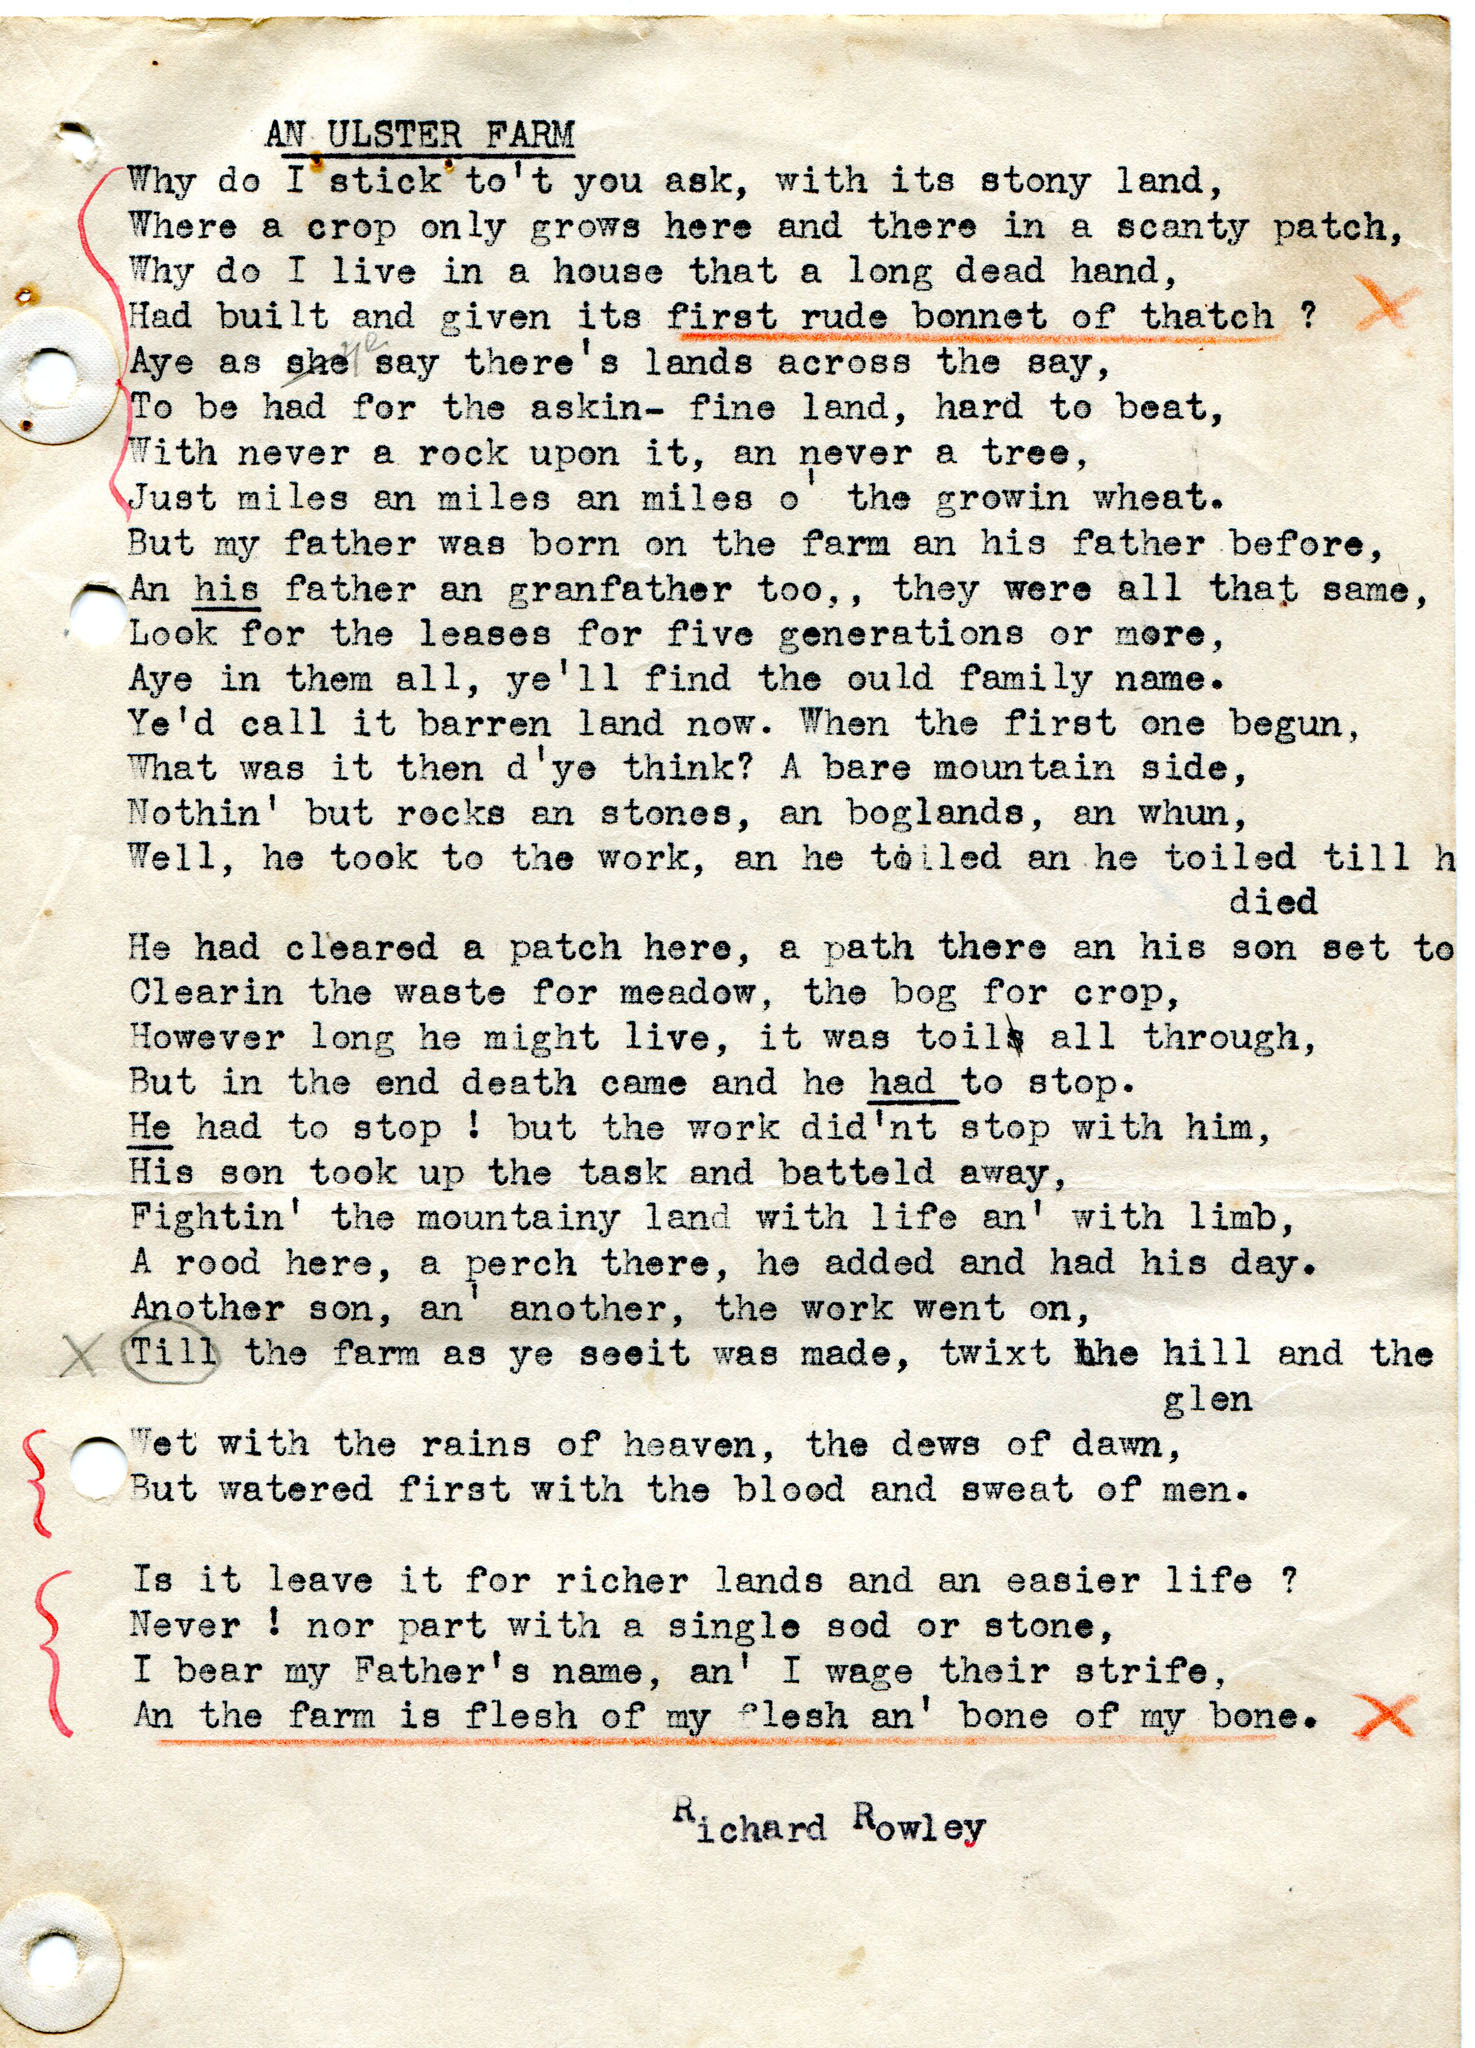 AN ULSTER FARM
Why do I stick to't you ask, with its stony land,
Where a crop only grows here and there in a scanty patch,
Why do I live in a house that a long dead hand,
Had built and given its first rude bonnet of thatch ?
Aye as she ye say there's lands across the say,
To be had for the askin- fine land, hard to beat,
With never a rock upon it, an never a tree,
Just miles an miles an miles o' the growin wheat.
But my father was born on the farm an his father before,
An his father an granfather too,, they were all that same,
Look for the leases for five generations or more,
Aye in them all, ye'll find the ould family name.
Ye'd call it barren land now. When the first one begun,
What was it then d'ye think? A bare mountain side,
Nothin' but rocks an stones, an boglands, an whun,
Well, he took to the work, an he toiled an he toiled till h
died
He had cleared a patch here, a path there an his son set to
Clearin the waste for meadow, the bog for crop,
However long he might live, it was toils all through,
But in the end death came and he had to stop.
He had to stop ! but the work did'nt stop with him,
His son took up the task and batteld away,
Fightin' the mountainy land with life an' with limb,
A rood here, a perch there, he added and had his day.
Another son, an' another, the work went on,
X Till the farm as ye seeit was made, twixt the hill and the
glen
Wet with the rains of heaven, the dews of dawn,
But watered first with the blood and sweat of men.
Is it leave it for richer lands and an easier life ?
Never ! nor part with a single sod or stone,
I bear my Father's name, an' I wage their strife,
An the farm is flesh of my flesh an' bone of my bone.
Richard Rowley